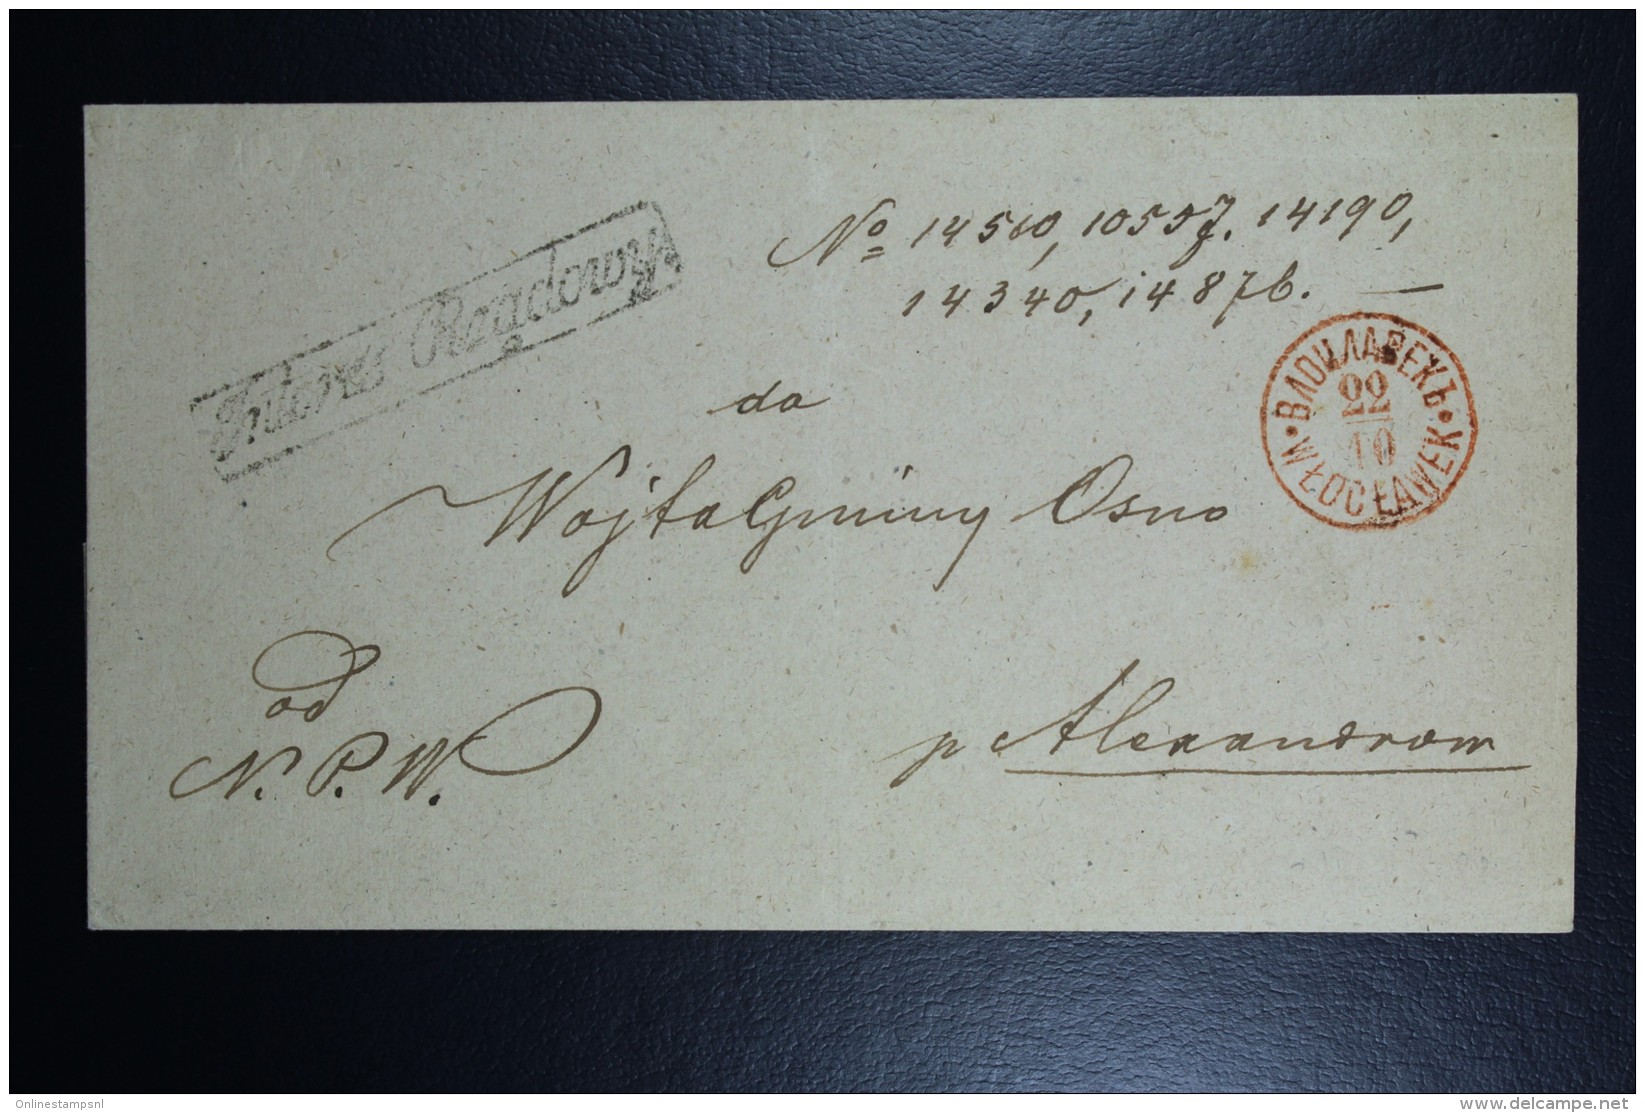 No 14560, 10557. 14190,
14340, 14876. —
Interes Rządowy
ВЛОЦЛАВЕКЪ
22
10
WŁOCŁAWEK
do
Wojta Gminy Osno
od
N. P. W.
p Alexandrow
Onlinestampsnl
www.delcampe.net